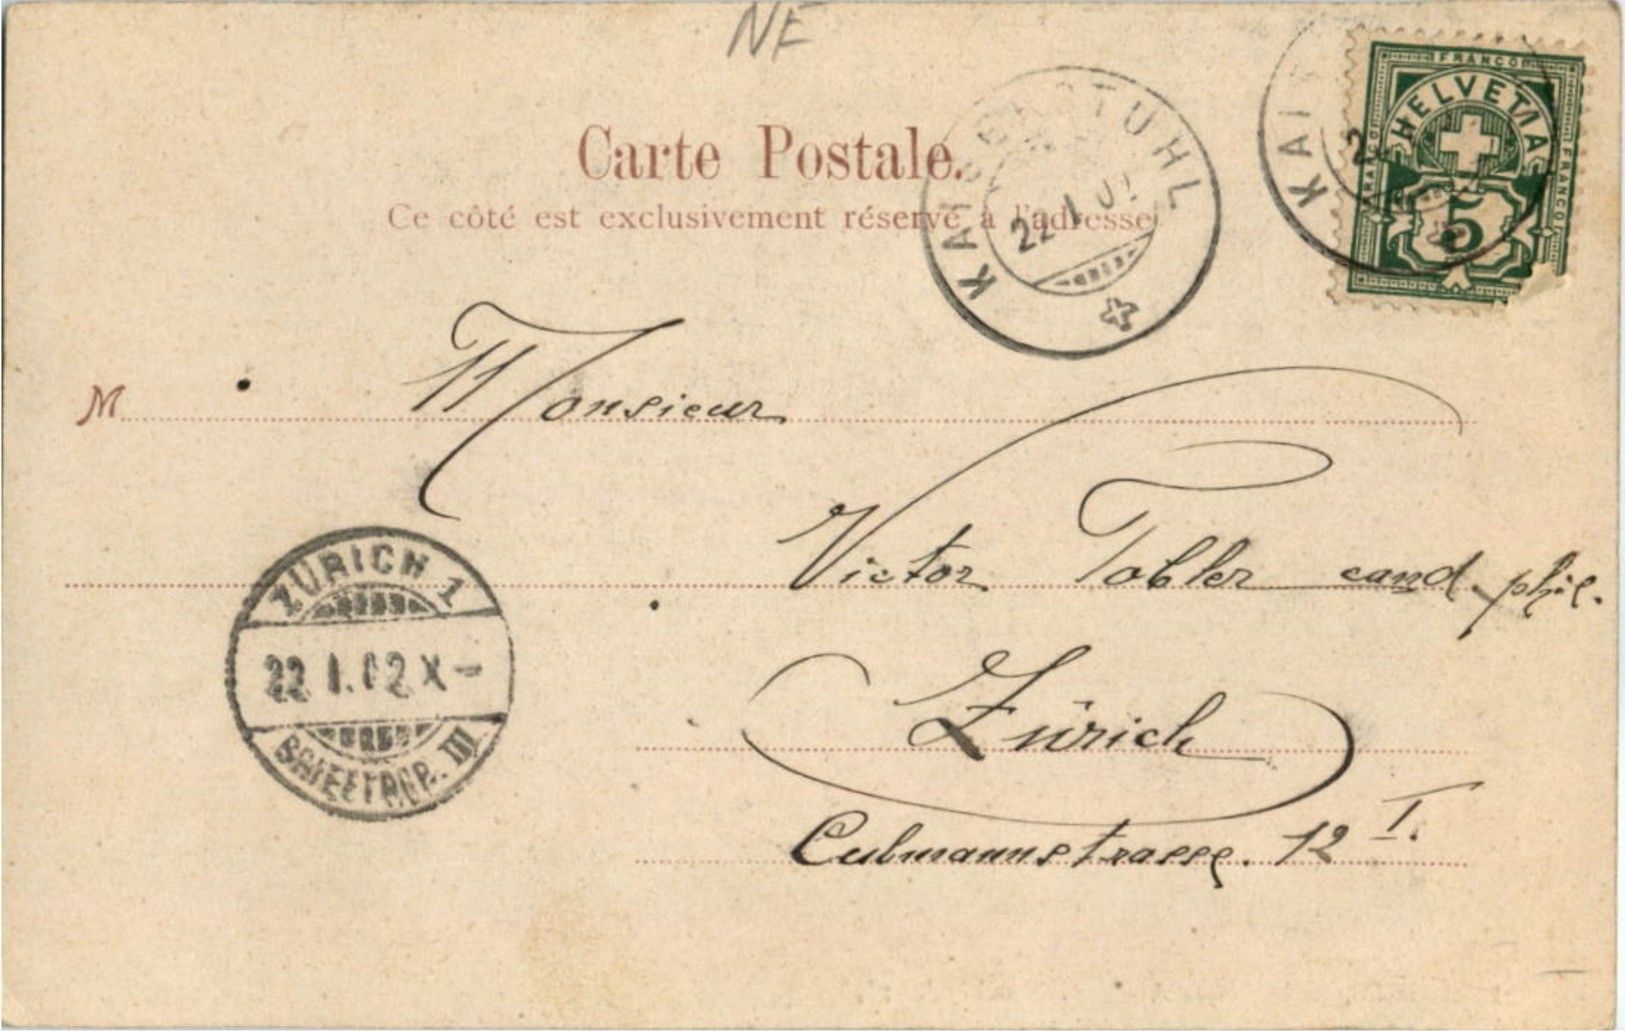 NE
Carte Postale.
Ce côté est exclusivement réservé à l'adresse
KAISERSTUHL
22 I 02
KAIS
2
FRANCO
FRANCO
FRANCO
HELVETIA
5
M
Monsieur
Victor Tobler cand. phil.
Zürich
Culmannstrasse. 12 I.
ZÜRICH 1
22 I. 02 X-
BRIEFTRÄG. III